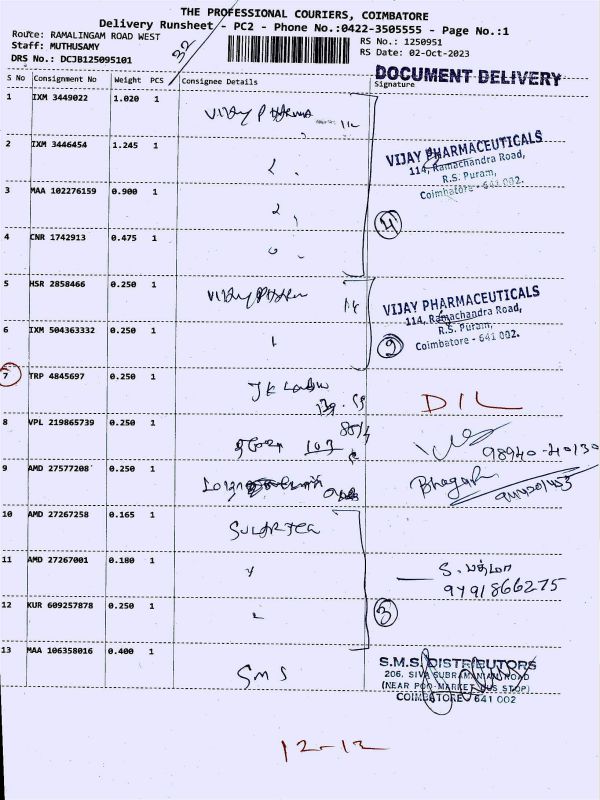 THE PROFESSIONAL COURIERS, COIMBATORE
Delivery Runsheet - PC2 - Phone No.:0422-3505555 - Page No.:1
Route: RAMALINGAM ROAD WEST
RS No.: 1250951
Staff: MUTHUSAMY
RS Date: 02-Oct-2023
DRS No.: DCJB125095101
32
DOCUMENT DELIVERY
S No Consignment No Weight PCS Consignee Details Signature
1 IXM 3449022 1.020 1
2 IXM 3446454 1.245 1
VIJAY PHARMACEUTICALS
114, Ramachandra Road,
R.S. Puram,
Coimbatore - 641 002.
3 MAA 102276159 0.900 1
4
4 CNR 1742913 0.475 1
5 HSR 2858466 0.250 1
VIJAY PHARMACEUTICALS
114, Ramachandra Road,
R.S. Puram,
Coimbatore - 641 002.
6 IXM 504363332 0.250 1
2
7 TRP 4845697 0.250 1 JK
DIL
8 VPL 219865739 0.250 1 103
98940-40130
9 AMD 27577208 0.250 1
10 AMD 27267258 0.165 1
11 AMD 27267001 0.180 1
S. பத்மா
9791866275
12 KUR 609257878 0.250 1
3
13 MAA 106358016 0.400 1 SMS
S.M.S. DISTRIBUTORS
206, SIVA SUBRAMANIAN ROAD
(NEAR POO-MARKET BUS STOP)
COIMBATORE - 641 002
12-12